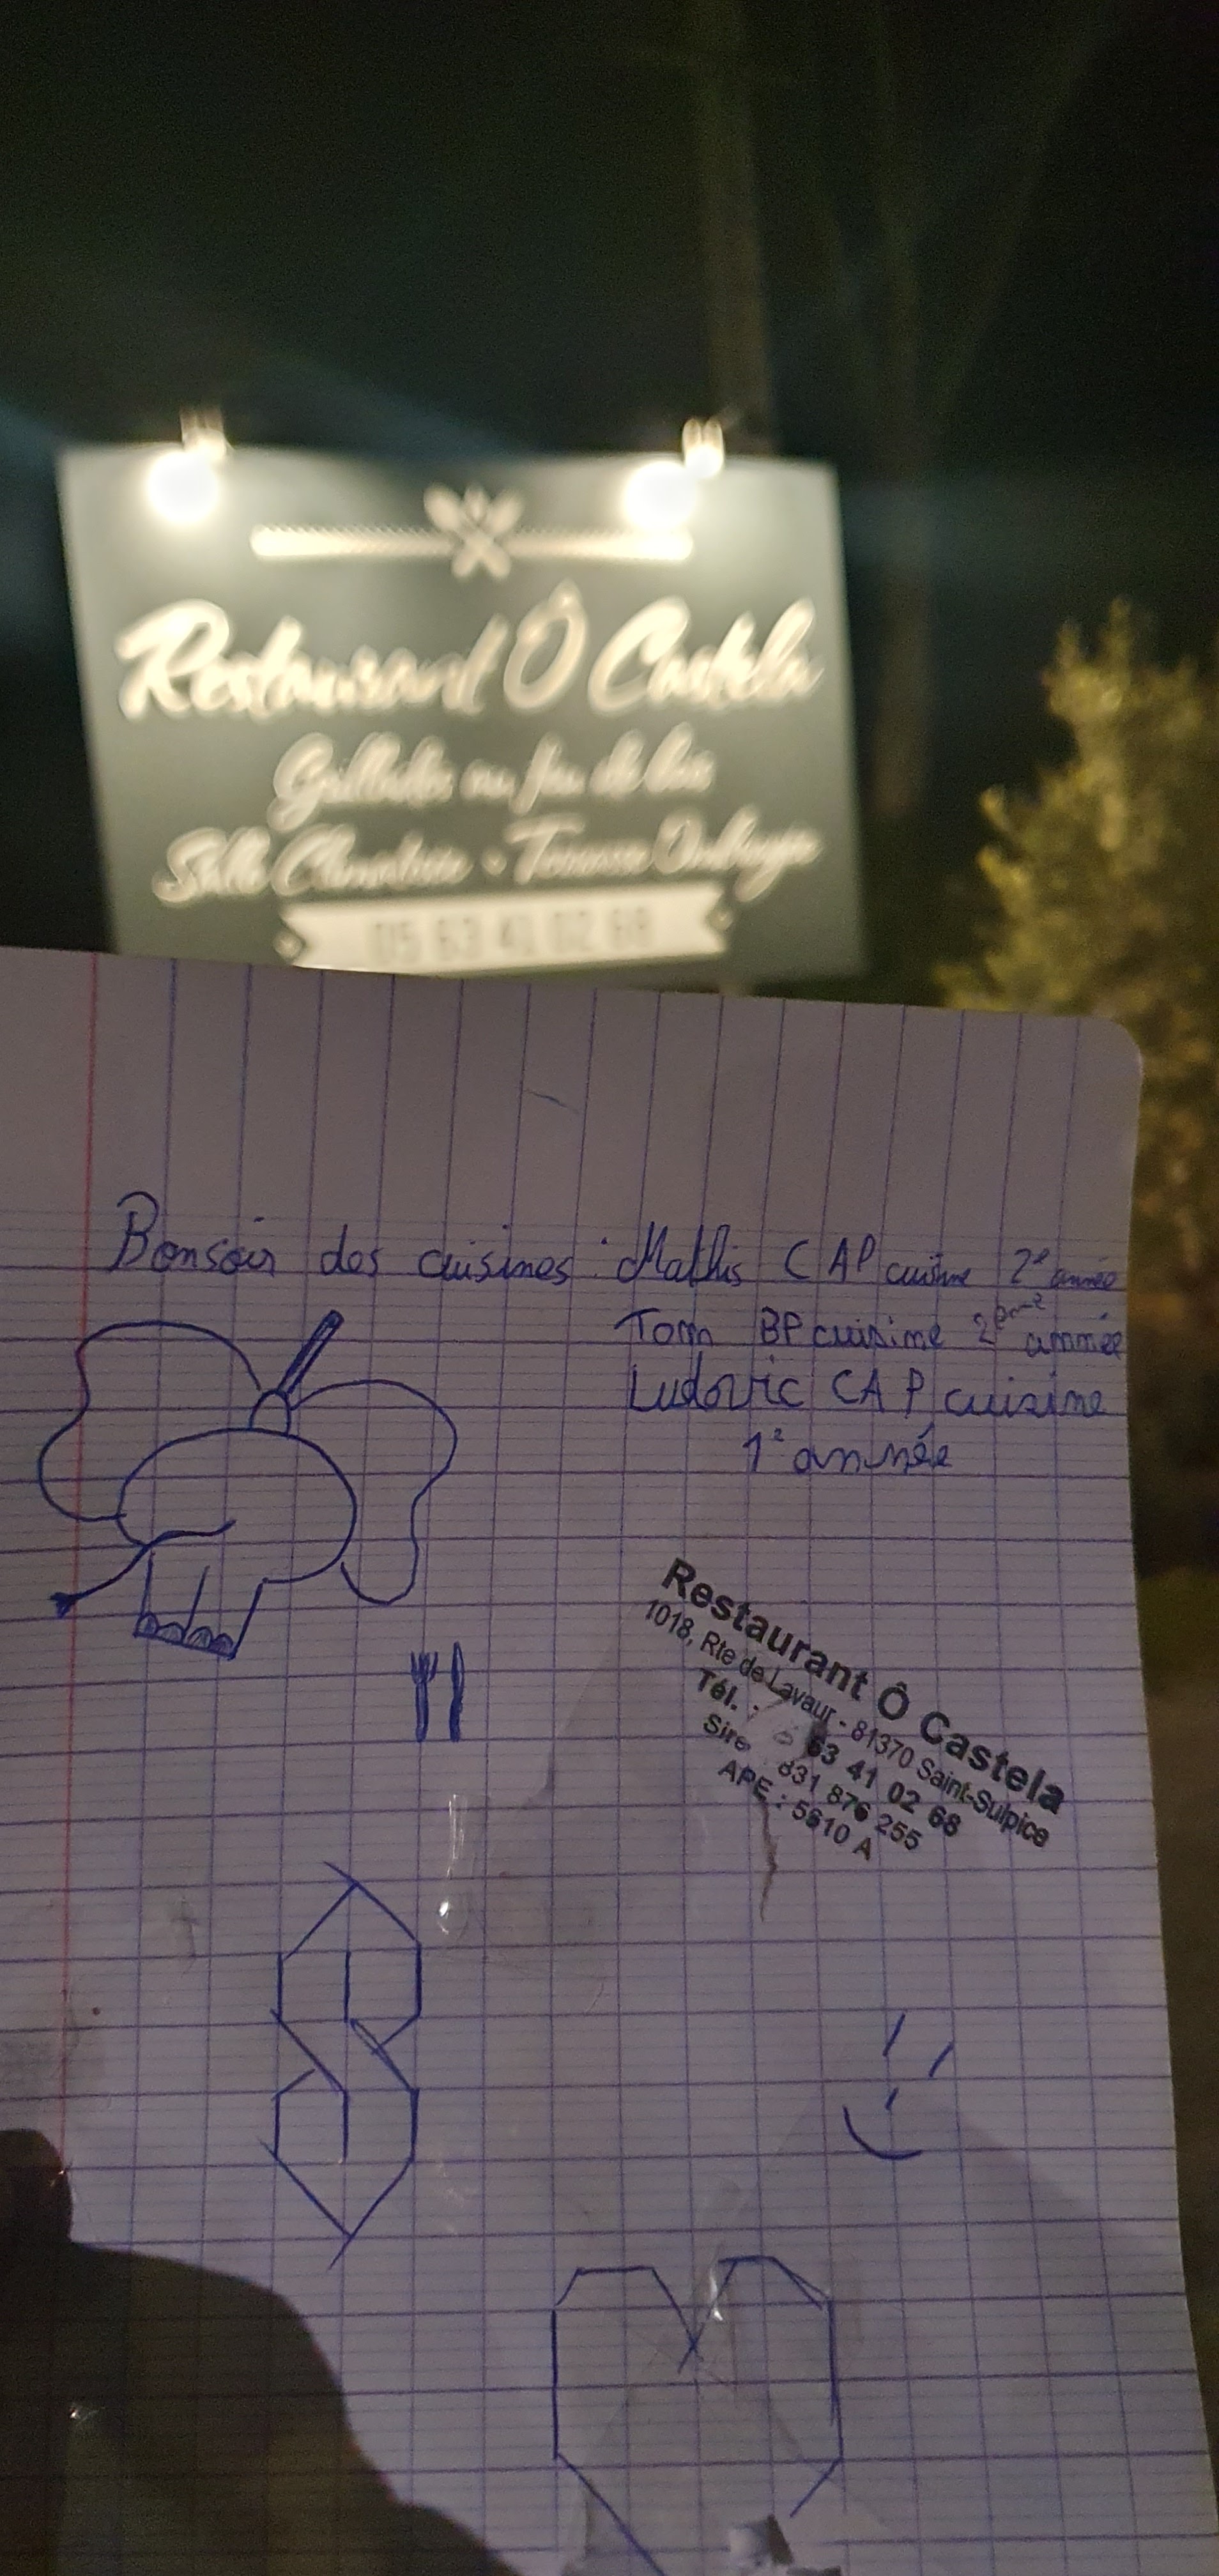 Restaurant Ô Castela
Grillades au feu de bois
Salle Climatisée - Terrasse Ombragée
05 63 41 02 68
Bonsoir des cuisines : Mathis CAP cuisine 2e année
Tom BP cuisine 2eme année
Ludovic CAP cuisine
1e année
Restaurant Ô Castela
1018, Rte de Lavaur - 81370 Saint-Sulpice
Tél. : 63 41 02 68
Sire 831 876 255
APE : 5610 A